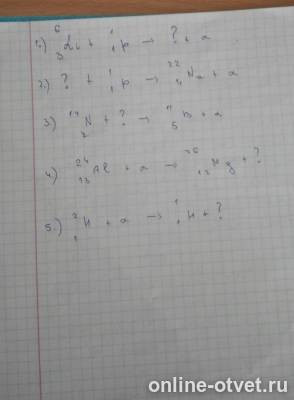 1.) ⁶₃Li + ¹₁p → ? + a
2.) ? + ¹₁p → ²²₁₁Na + a
3) ¹⁴₇N + ? → ¹¹₅B + a
4.) ²⁴₁₃Al + a → ²⁶₁₂Mg + ?
5.) ²₁H + a → ¹₁H + ?
online-otvet.ru